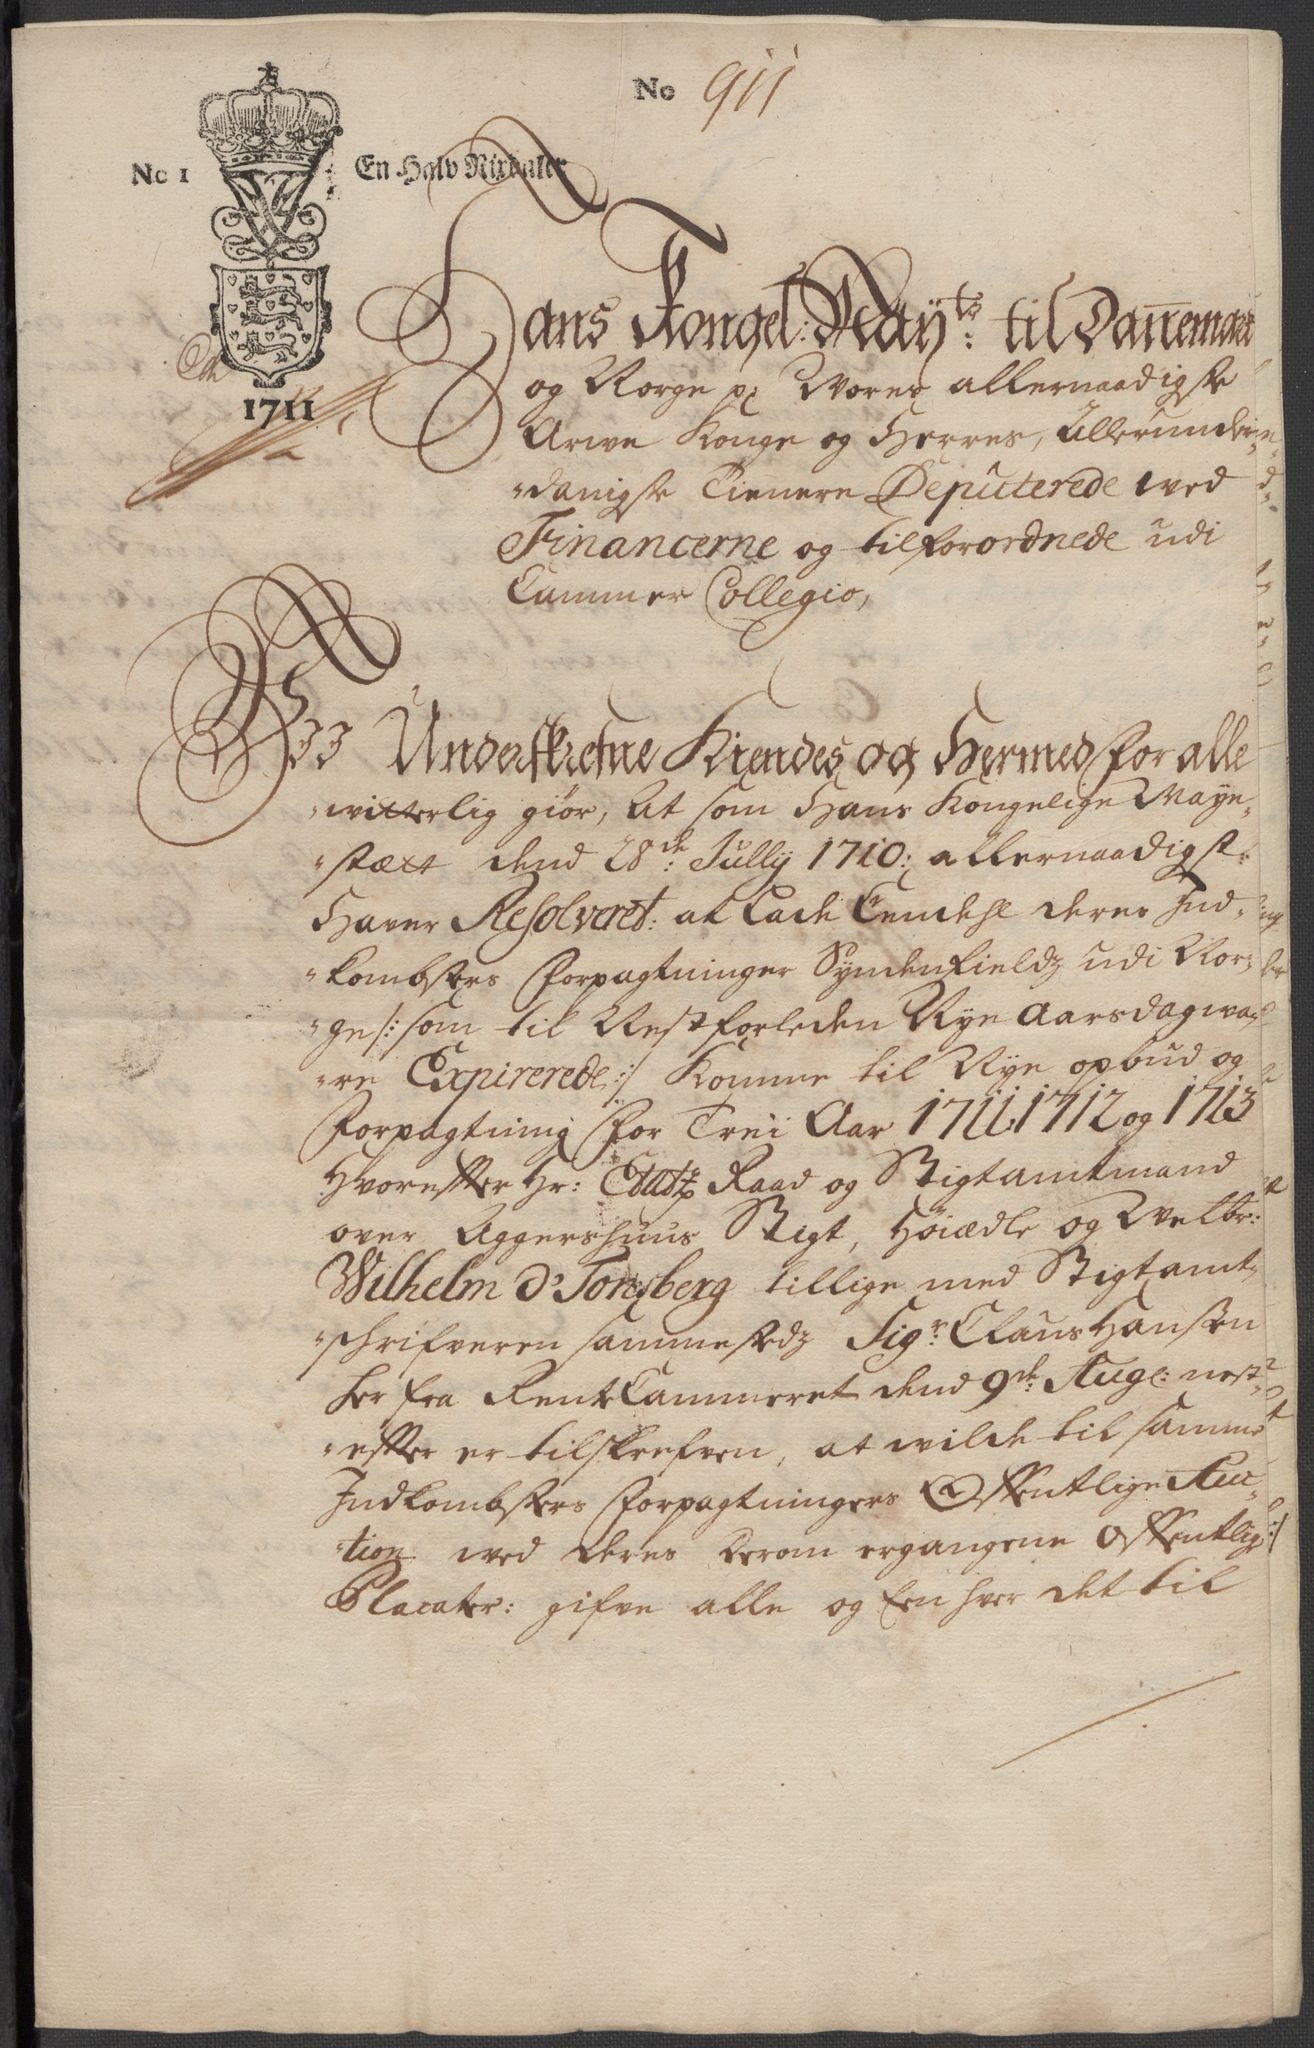 No 911
No 1 En Halv Rixdaler
1711
Hans Kongel: Mayts: til Dannemarck
og Norge p: Vores allernaadigste
Arve Konge og Herres, Allerunder-
"danigste Tienere Deputterede ved
Financerne og tilforordnede udi
Cammer Collegio,
Wii Underskrefne Kiendes og Hermed for alle
"witterlig giör, At som Hans Kongelige Maye-
"stætt dend 28de: Jully 1710: allernaadigst
Haver Resolveret: at lade Eendehl deres Ind-
"kombsters Forpagtninger Syndenfieldz udi Nor-
"ge /: som til Nestforleden Nye Aarsdag wa-
"re Expirerede :/ Komme til Nye opbud og
Forpagtning for Trei Aar 1711, 1712 og 1713
Hvoreffter Hr: Etatz Raad og Stigtamtmand
over Aggershuus Stigt, Höiædle og Velbr:
Wilhelm d'Tonsberg tillige med Stigtamt-
"schrifveren sammestedz Sigr: Claus Hansen
her fra RenteCammeret dend 9de: Aug: nest-
"effter er tilskrefven, at wilde til samme
Indkombsters Forpagtningers Offentlige Auc-
"tion wed deres derom ergangene Offentlige
Placater: gifve alle og Een hver det til